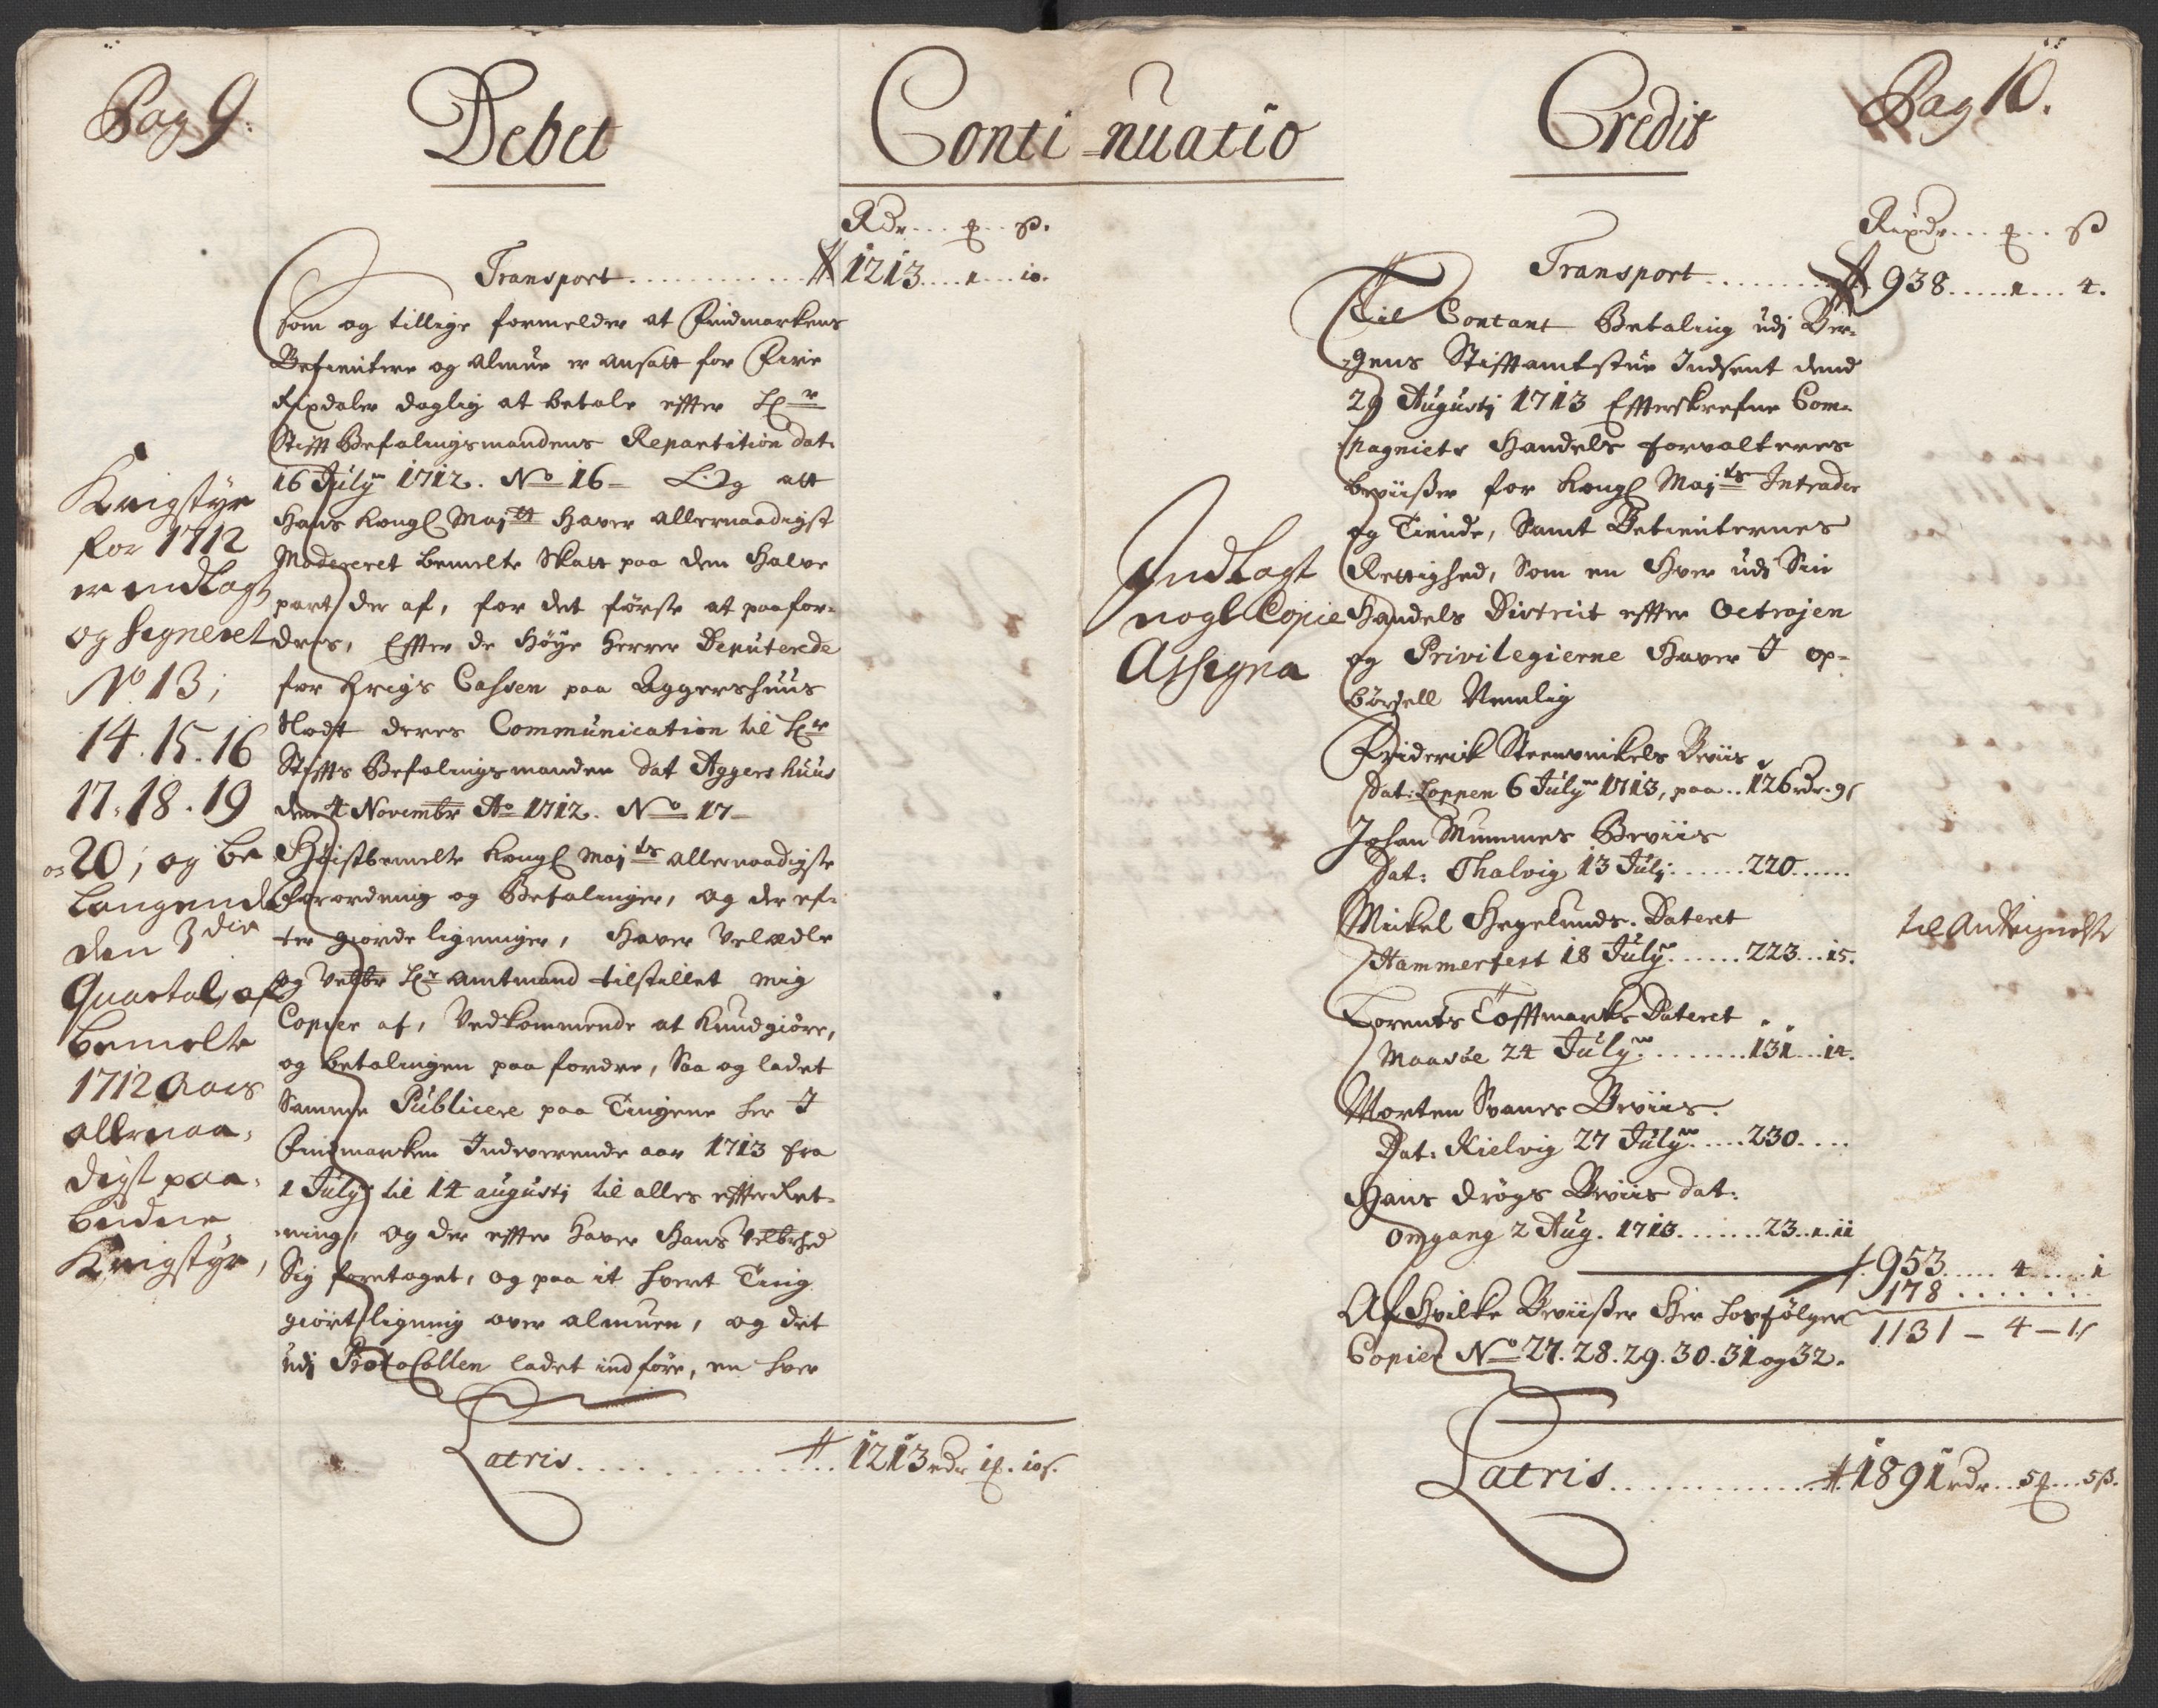 Pag 9.
Debet
Continuatio
Rdr... ... s.
Transport ........... 1213....1....10.
som og tillige formelder at Findmarkens
Betientere og almue er ansatt for Fire
Rixdaler daglig at betale effter Hr
Stifft Befalingsmandens Repartition dat:
16 July 1712. No 16 – Og att
Hans Kongl Maytt haver allernaadigst
Modereret bemelte Skatt paa den Halve
part der af, for det første at paafor-
dres, Effter de Høye Herrer Deputerede
for Krigs Cassen paa Aggershuus
Slodt deres Communication til Hr
Stiffts Befalingsmanden dat Aggershuus
den 4 Novembr Ao 1712. No 17 –
Høistbemelte Kongl Mayts allernaadigste
forordning og Befalinger, og der ef-
ter giorde ligninger, Haver Velædle
og Velbr Hr Amtmand tilstillet mig
Copier af, Vedkommende at Kundgiøre,
og betalingen paa fordre, Saa og ladet
Samme Publicere paa Tingene her I
Findmarken Indeverende aar 1713 fra
1 July til 14 augusti til alles effterRet-
ning, og der effter haver Hans Velbrhed
Sig foretaget, og paa it hvert Ting
giørt ligning over almuen, og det
udi Protocollen ladet indføre, en hver
Latris .............. 1213 rdr 1. 10s.
Krigstyr
for 1712
er indlagt
og Signeret
No 13;
14. 15. 16
17. 18. 19
20; og be
Langende
den 3die
Quartal, af
bemelte
1712 Aars
allernaa-
digst paa-
budne
Krigstyr,
Pag 10.
Credit
Rixdr... ... s
Transport ......... 938.....1... 4.
Til Contant Betaling udj Ber-
gens Stifftamtstue Indsent dend
29 Augustj 1713 Effterskrefne Com-
pagniets Handels forvalteres
beviisser for Kongl Mayts Intrader
og Tiende, Samt Betienternes
Rettighed, Som en Hver udi Sin
Handels District effter Octrojen
og Privilegierne Haver I op-
børsell Nemlig
Friderick Steenvinkels Beviis
Dat: Loppen 6 July 1713, paa.. 126 rdr. 9s
Johan Mummes Beviis
Dat: Thalvig 13 Julj ...... 220......
Mickel Hegelunds. Dateret
Hammerfest 18 July ...... 223... 15.
Lorents Tofftmarks Dateret
Maasøe 24 July ........ 131... 14.
Morten Svanes Beviis.
Dat: Kielvig 27 July ..... 230....
Hans Krøgs Beviis dat:
Omgang 2 Aug. 1713 ....... 23..1.11
953..... 4......1
178 .......
1131 – 4 – 1s
Af Hvilke Beviisser Her Hosfølger
Copier No 27. 28. 29. 30. 31 og 32.
Latris ............. 1891 rdr.. 5... 5s.
Indlagt
nogle Copie
Assigna
til Antegnelse